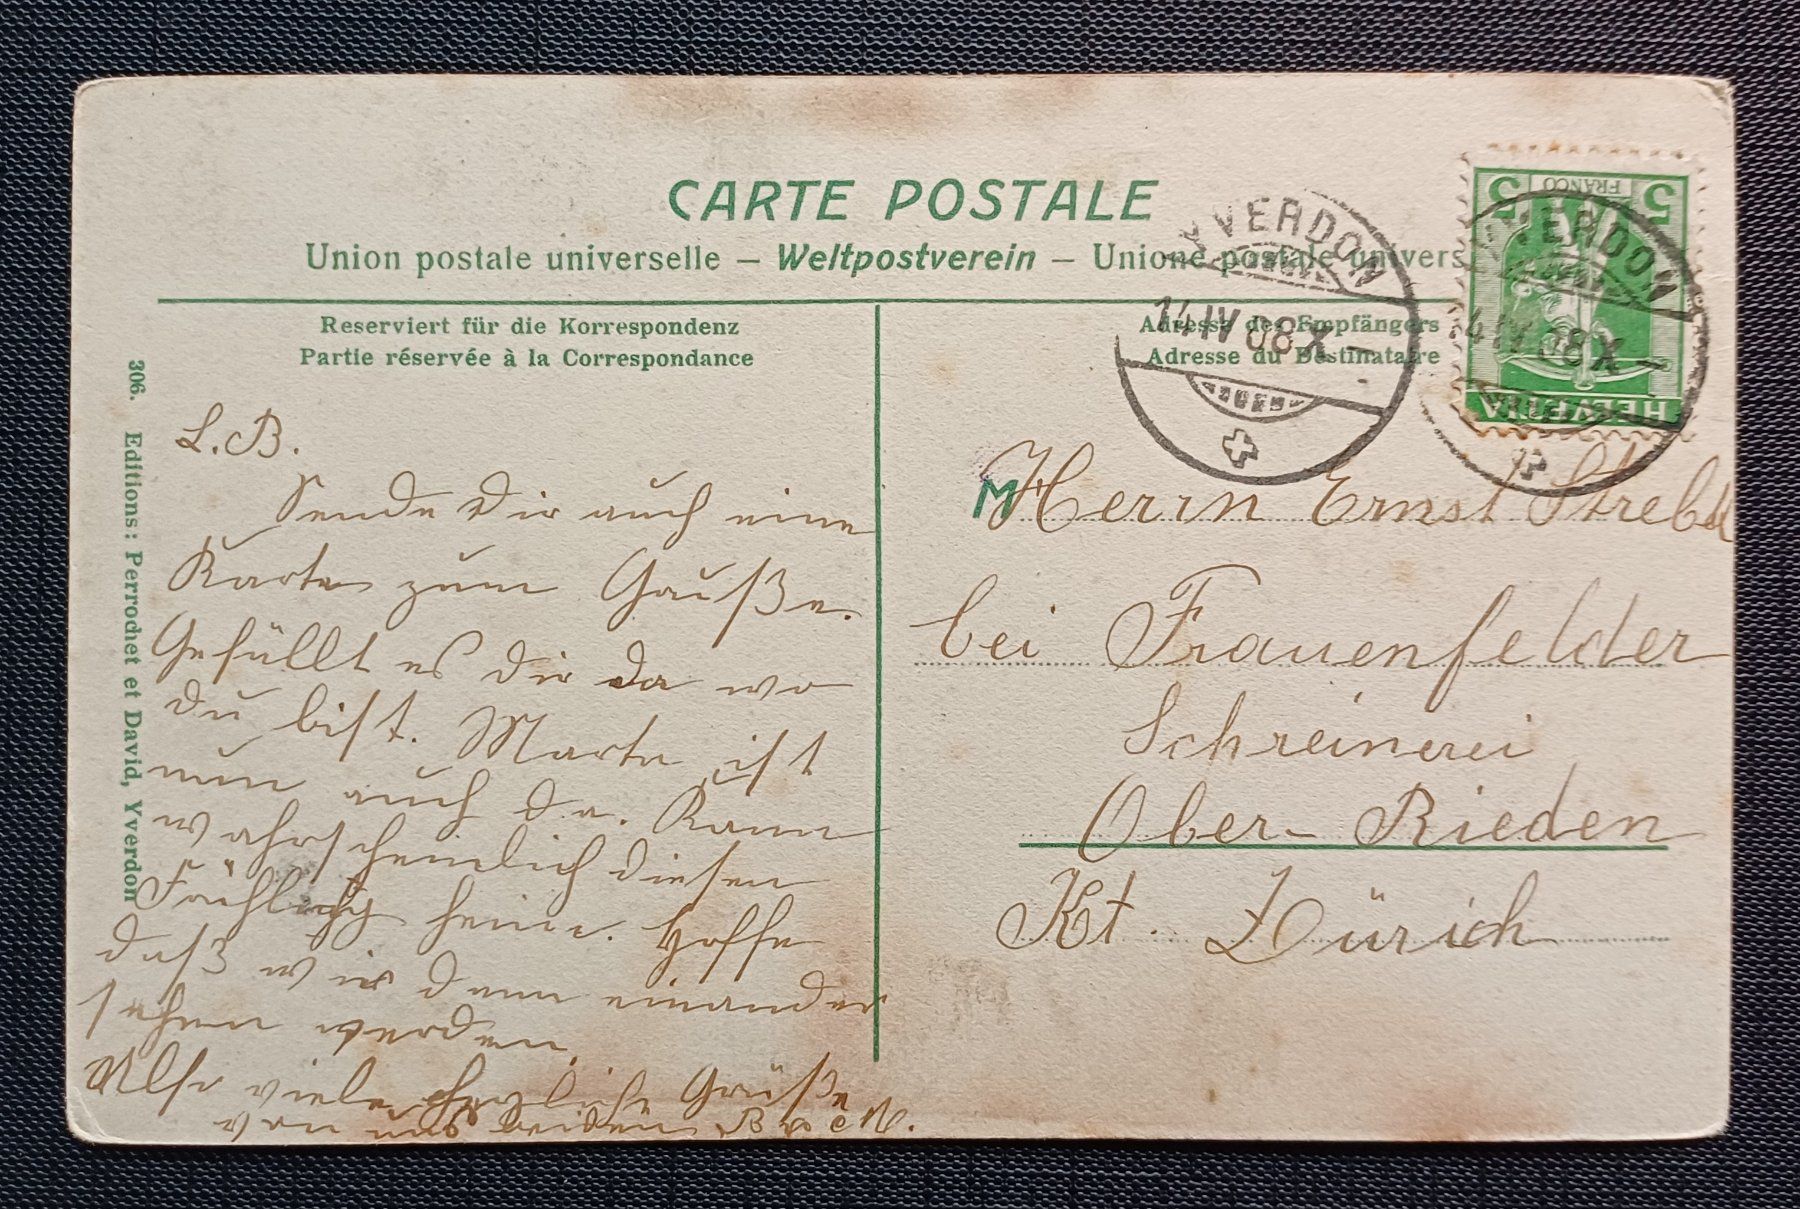 CARTE POSTALE
Union postale universelle – Weltpostverein – Unione postale univers
Reserviert für die Korrespondenz
Partie réservée à la Correspondance
Adresse des Empfängers
Adresse du Destinataire
306. Editions: Perrochet et David, Yverdon
5 FRANCO 5
HELVETIA
YVERDON
14 IV 08 X –
YVERDON
14 IV 08 X –
L. B.
Sende Dir auch eine
Karte zum Gruße.
Gefällt es dir da wo
du bist. Marta ist
nun auch da. Kann
wahrscheinlich diesen
Frühling heim. Hoffe
daß wir denn einander
sehen werden.
Also viele herzliche Grüße
von uns beiden B
M Herrn Ernst Strebel
bei Frauenfelder
Schreinerei
Ober-Rieden
Kt. Zürich